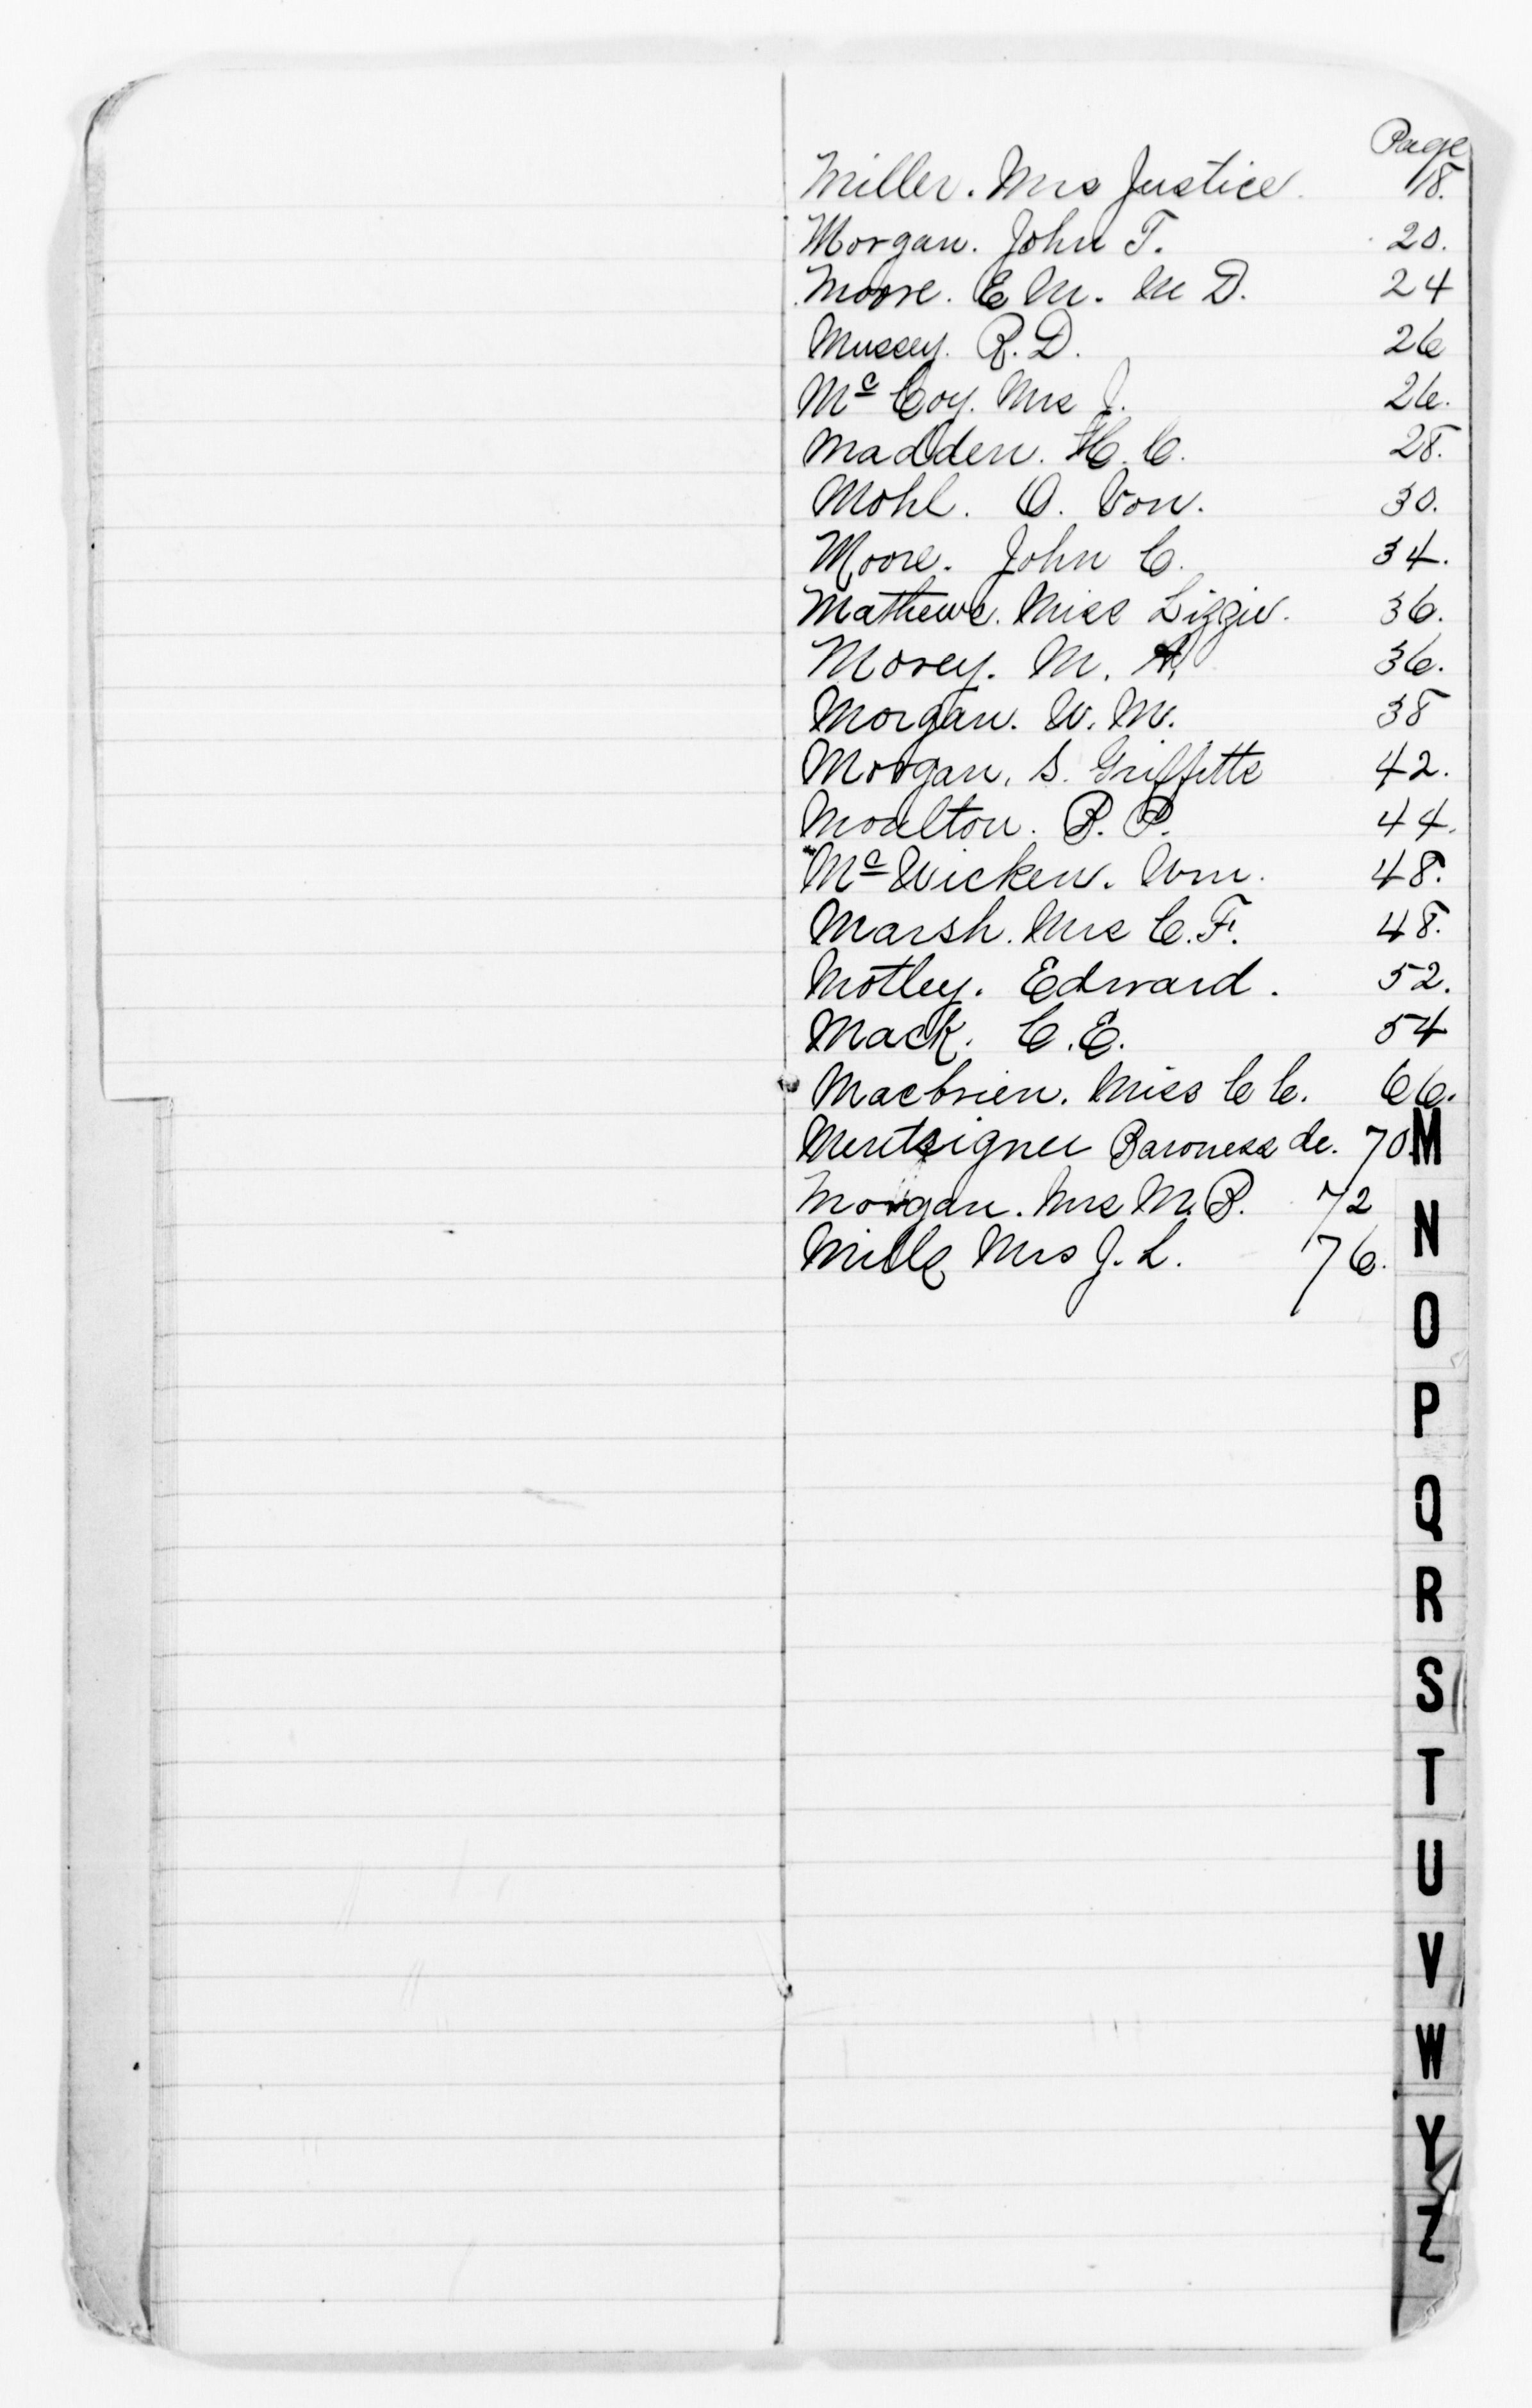 Page
Miller. Mrs Justice. 18.
Morgan. John T. 20.
Moore. E M. M D. 24
Mussey. R. D. 26
Mc Coy. Mrs J. 26.
Madden. H. C. 28.
Mohl. O. Von. 30.
Moore. John C. 34.
Mathews. Miss Lizzie. 36.
Morey. M. A. 36.
Morgan. W. M. 38
Morgan. S. Griffitts 42.
Moulton. B. P. 44.
Mc Wicken. Wm. 48.
Marsh. Mrs C. F. 48.
Motley. Edward. 52.
Mack. C. E. 54
Macbrien. Miss C C. 66.
Baroness de. 70.
Morgan. Mrs M. B. 72
Mills Mrs J. L. 76.
M
N
O
P
Q
R
S
T
U
V
W
Y
Z